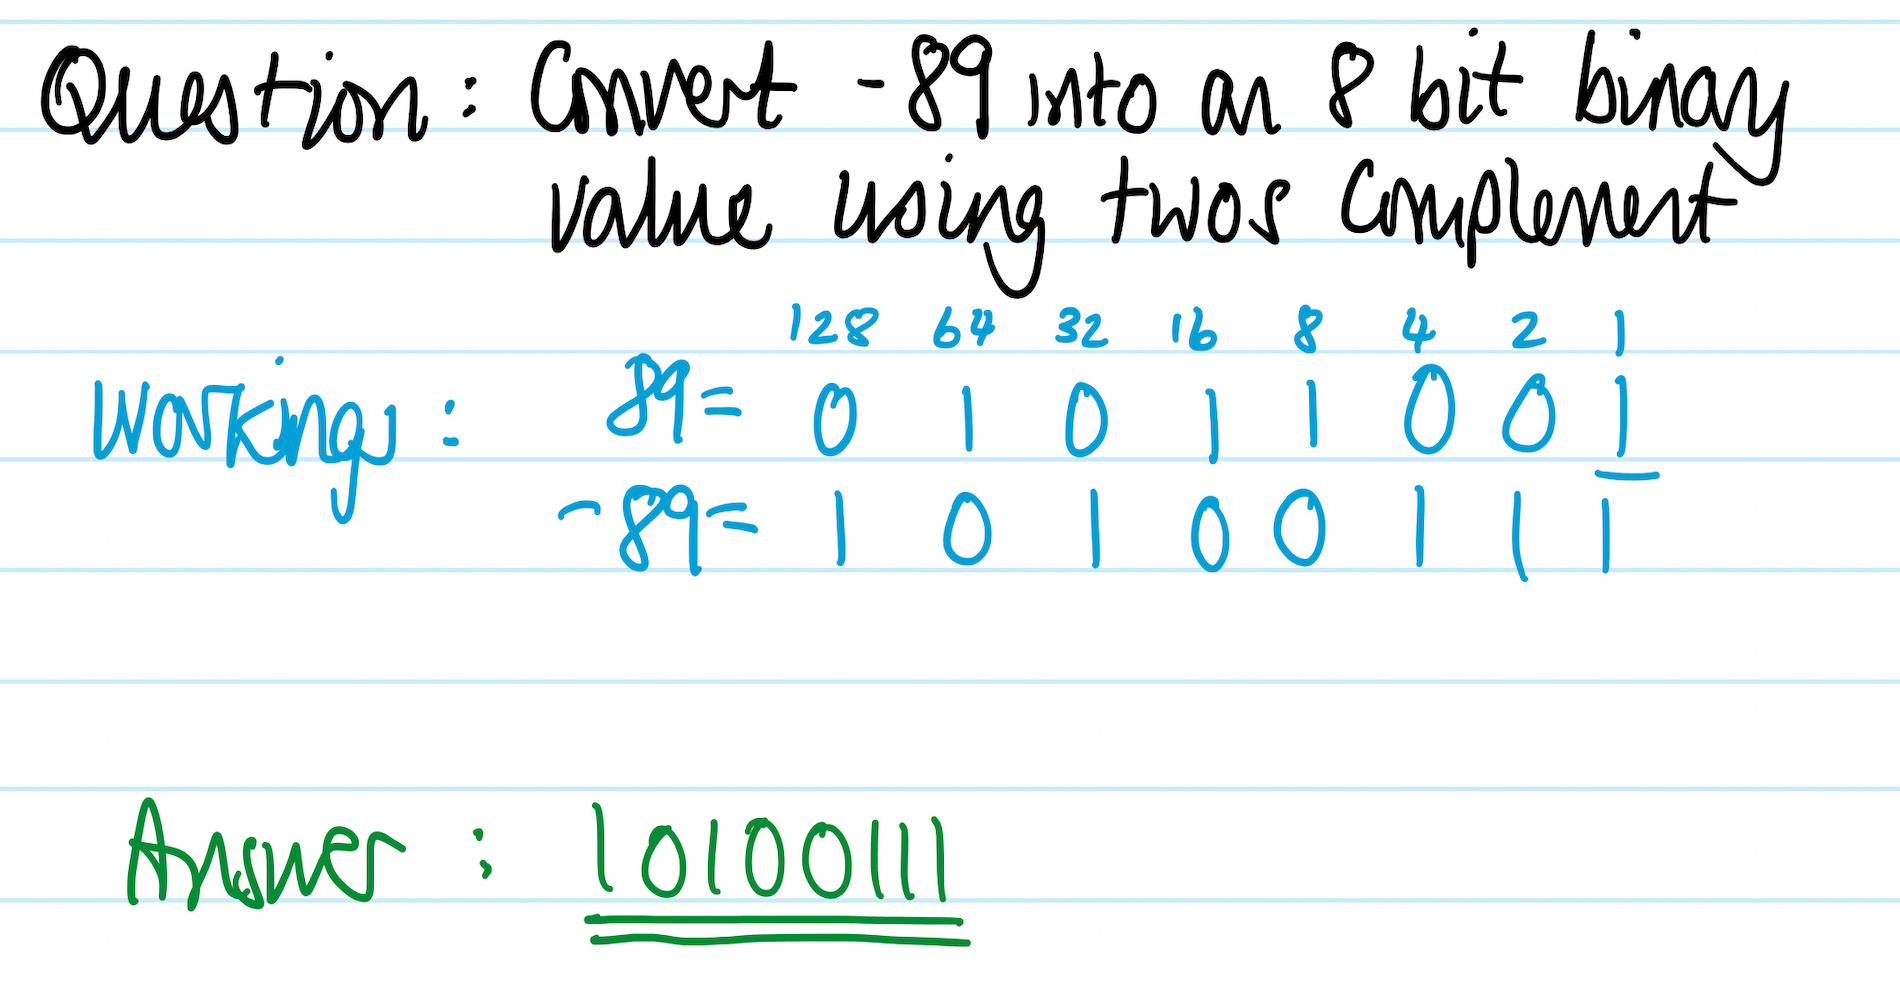 Question: Convert -89 into an 8 bit binary
value using twos complement
128 64 32 16 8 4 2 1
Workings: 89= 0 1 0 1 1 0 0 1
-89= 1 0 1 0 0 1 1 1
Answer: 10100111